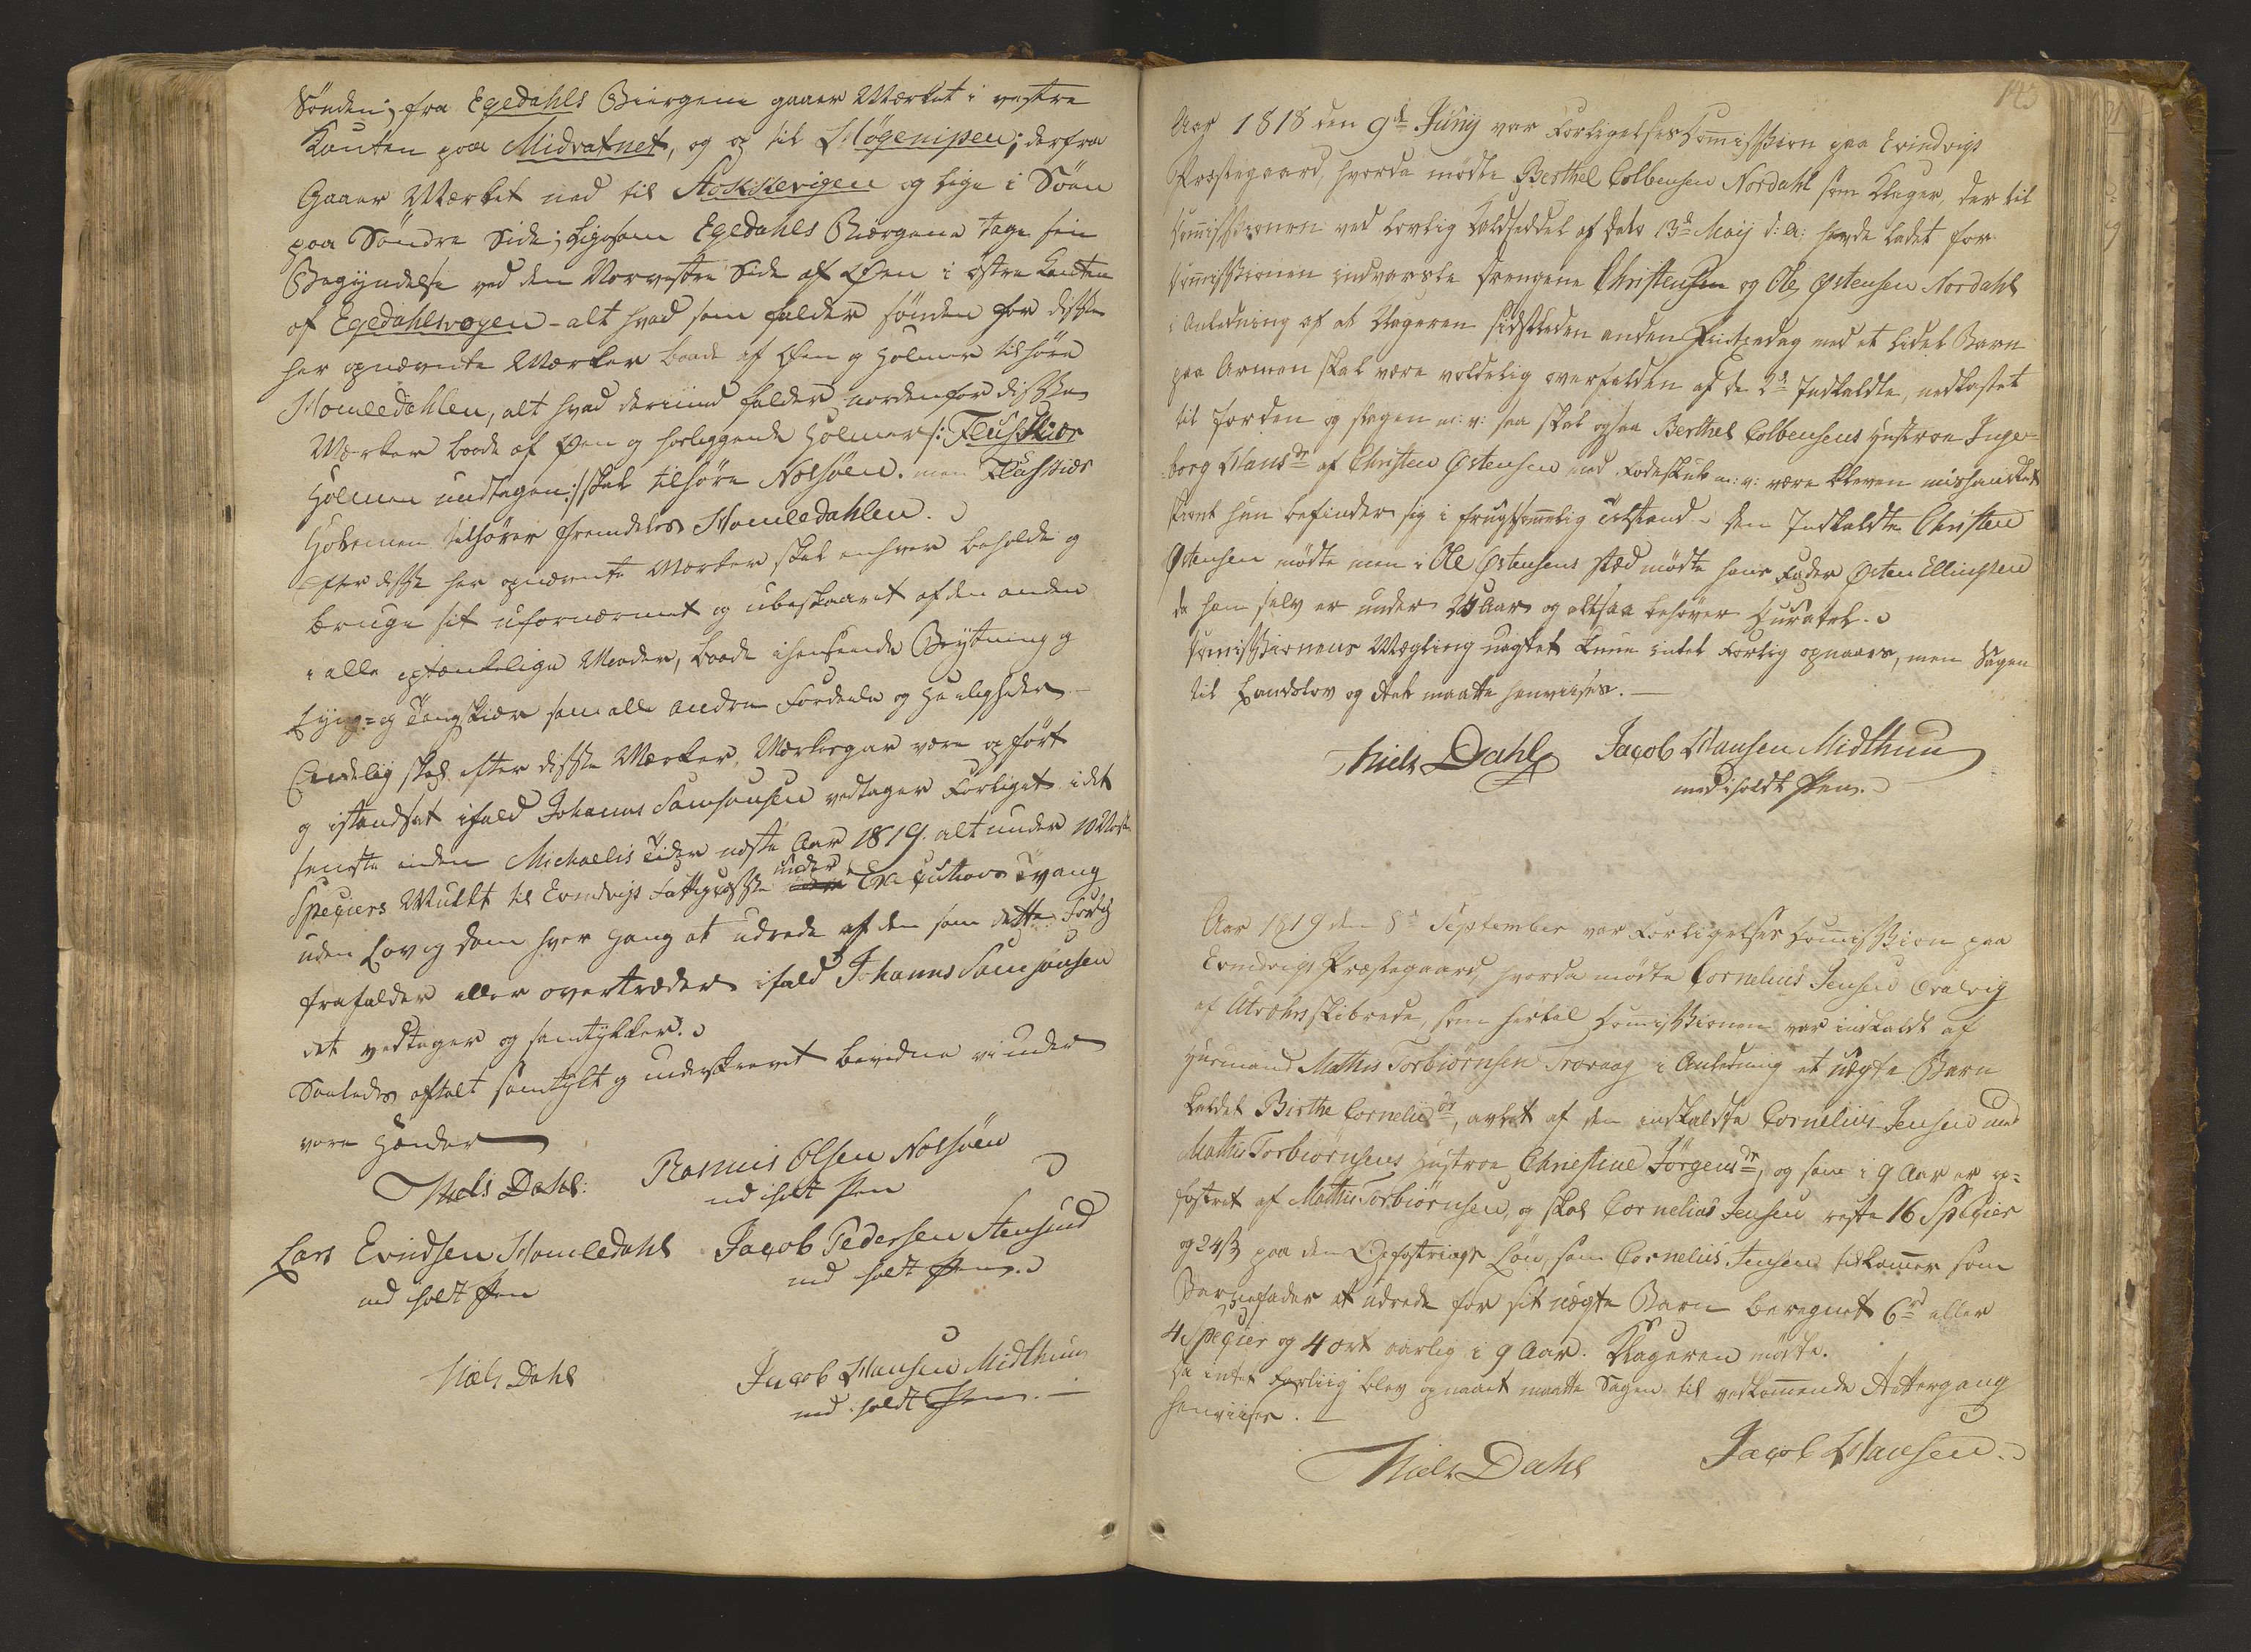 Sönden; fra Egedahls Biergene gaaer Mærket i vestre
Kanten paa Midvatnet, og op til Högenipen; derfra
Gaaer Mærket ned til Stokkevigen og lige i Söen
paa Söndre Side; ligesom Egedahls Biergene tage sin
Begyndelse ved den Norvestre Side af Öen i östre Kanten
af Egedahlsvogen - alt hvad som falder sönden for disse
her opnævnte Mærker baade af Öen og Holmer tilhöre
Homledahlen, alt hvad derimod falder nordenfor disse
Mærker baade af Öen og hosliggende Holmer /: Flusskiær
Holmen undtagen :/ skal tilhöre Nolsöen. men Flusskiær
Holmen tilhörer fremdeles Homledahlen.
Efter disse her opnævnte Mærker skal enhver beholde og
bruge sit ufornærmet og ubeskaaret af den anden
i alle optænkelige Maader, baade i henseende Beytning og
Lyng= og Tangskiær som alle andre Fordeele og Herligheder -
Endelig skal efter disse Mærker, Mærkesgar være opfört
og istandsat ifald Johannes Samsonsen vedtager Forliget idet
seneste inden Michaelis Tider næste Aar 1819. alt under 10
Speciers Mulkt til Evindvigs Fattigcasse under Executions Tvang
uden Lov og Dom hver gang at udrede af den som dette Forlig
frafalder eller overtræder ifald Johannes Samsonsen
det vedtager og samtykker.
Saaledes aftalt samtykt og underskrevet bevidne vi under
vore Hænder
Niels Dahl: Rasmus Olsen Nolsöen
med iholt Pen
Lars Evindsen Homledahl Jacob Pedersen Stensund
med iholt Pen med iholt Pen.
Niels Dahl Jacob Hansen Midthun
med iholdt Pen. -
143
Aar 1818 den 9de Juny var Forligelses Comission paa Evindvigs
Præstegaard, hvorda mödte Berthel Colbensen Nordahl som Klager, der til
Comissionen ved lovlig Kaldseddel af Dato 13de Maij d: A: havde ladet for
Comissionen indvarsle Drengene Christen og Ole Östensen Nordahl
i Anledning af at Klageren sidstleden anden Pintzedag med et lidet Barn
paa Armen skal være voldelig overfalden af de 2de Indkaldte, nedkastet
til Jorden og slagen m: v: saa skal ogsaa Berthel Colbensens Hustroe Inge=
borg Hansdr af Christen Östensen med Fodespark m: v: være bleven mishandlet
skiönt hun befinder sig i frugtsommelig Tilstand - Den Indkaldte Christen
Östensen mödte men i Ole Östensens sted mödte hans Fader Östen Ellingsen
da han selv er under 25 Aar og altsaa behöver Curator.
Comissionens Mægling uagtet kunne intet Forlig opnaaes, men Sagen
til Landslov og Ret maatte henviises. -
Niels Dahl Jacob Hansen Midthun
med iholdt Pen.
Aar 1819 den 8de September var Forligelses Comission paa
Evindvigs Præstegaard, hvorda mödte Cornelius Jensen
af Utvæhrs skibrede, som hertil Comissionen var indkaldt af
Huusmand Mathis Torbiörnsen Trovaag i Anledning et uægte Barn
kaldet Birthe Corneliidr, avlet af den indkaldte Cornelius Jensen med
Mathis Torbiörnsens Hustroe Christine Jörgensdr, og som i 9 Aar er op=
fostret af Mathis Torbiörnsen, og skal Cornelius Jensen reste 16 Specier
og 24 s paa den Opfostrings Lön, som Cornelius Jensen tilkommer som
Barnefader at udrede for sit uægte Barn beregnet 6 rd eller
4 Specier og 4 ort aarlig i 9 Aar. Klageren mödte.
Da intet Forliig blev opnaaet maatte Sagen til vedkommende Rettergang
henviises. -
Niels Dahl Jacob Hansen.